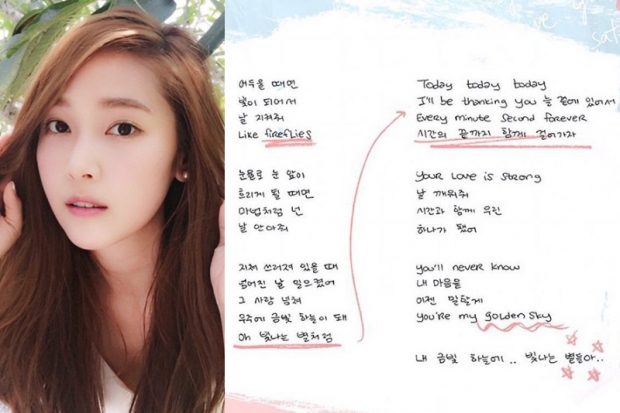 어두울 때면
빛이 되어서
날 지켜줘
Like fireflies
눈물로 눈 앞이
흐리게 될 때면
마법처럼 넌
날 안아줘
지쳐 쓰러져 있을 때
넘어진 날 일으켰어
그 사랑 넘쳐
우주에 금빛 하늘이 돼
oh 빛나는 별처럼
Today today today
I'll be thanking you 늘 곁에 있어서
Every minute second forever
시간의 끝까지 함께 걸어가자
your love is strong
날 깨워줘
시간과 함께 우린
하나가 됐어
you'll never know
내 마음을
이젠 말할게
you're my golden sky
내 금빛 하늘에.. 빛나는 별들아..